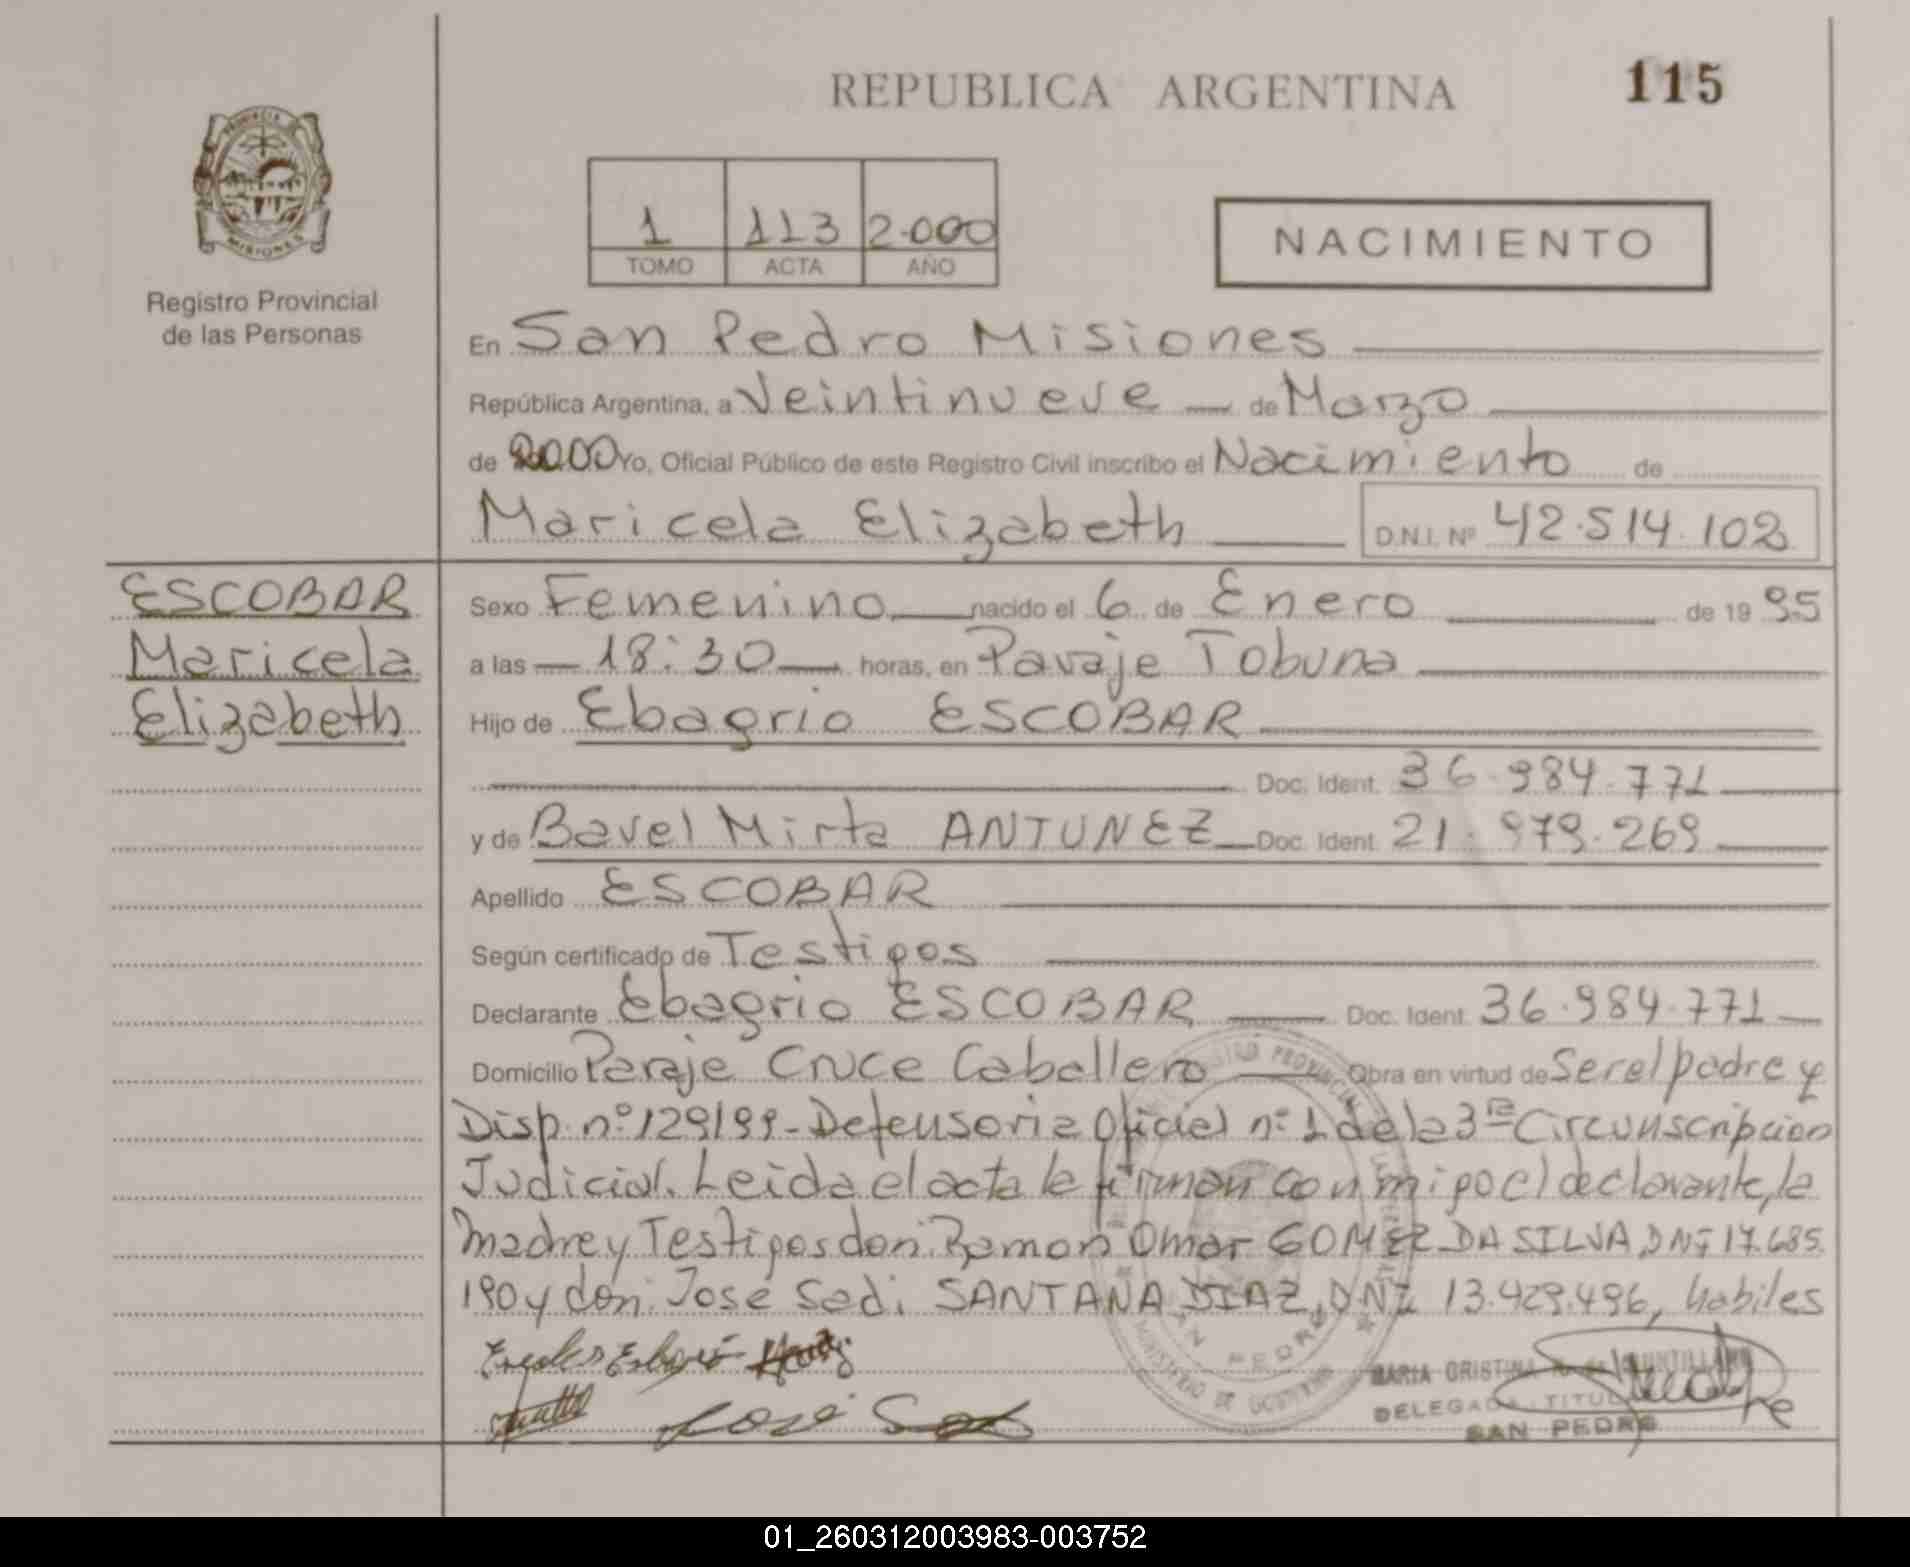 REPUBLICA ARGENTINA
115
PROVINCIA DE
MISIONES
Registro Provincial
de las Personas
1 113 2.000
TOMO ACTA AÑO
NACIMIENTO
En San Pedro Misiones
República Argentina, a Veintinueve de Marzo
de 2000 Yo, Oficial Público de este Registro Civil inscribo el Nacimiento de
Maricela Elizabeth D.N.I. Nº 42.514.102
ESCOBAR
Maricela
Elizabeth
Sexo Femenino nacido el 6 de Enero de 19 95
a las 18:30 horas, en Paraje Tobuna
Hijo de Ebagrio ESCOBAR
Doc. Ident. 36.984.771
y de Bavel Mirta ANTUNEZ Doc. Ident. 21.979.269
Apellido ESCOBAR
Según certificado de Testigos
Declarante Ebagrio ESCOBAR Doc. Ident. 36.984.771
Domicilio Paraje Cruce Caballero Obra en virtud de Ser el padre y
Disp. nº 129/99-Defensoria Oficial nº 1 de la 3ra Circunscripcion
Judicial. Leida el acta la firman conmigo el declarante, la
madre y Testigos don: Ramon Omar GOMEZ DA SILVA, DNI 17.685.
190 y don: Jose Sadi SANTANA DIAZ, DNI 13.429.496, habiles
José
MARIA CRISTINA
DELEGADA TITULAR
SAN PEDRO
01_260312003983-003752